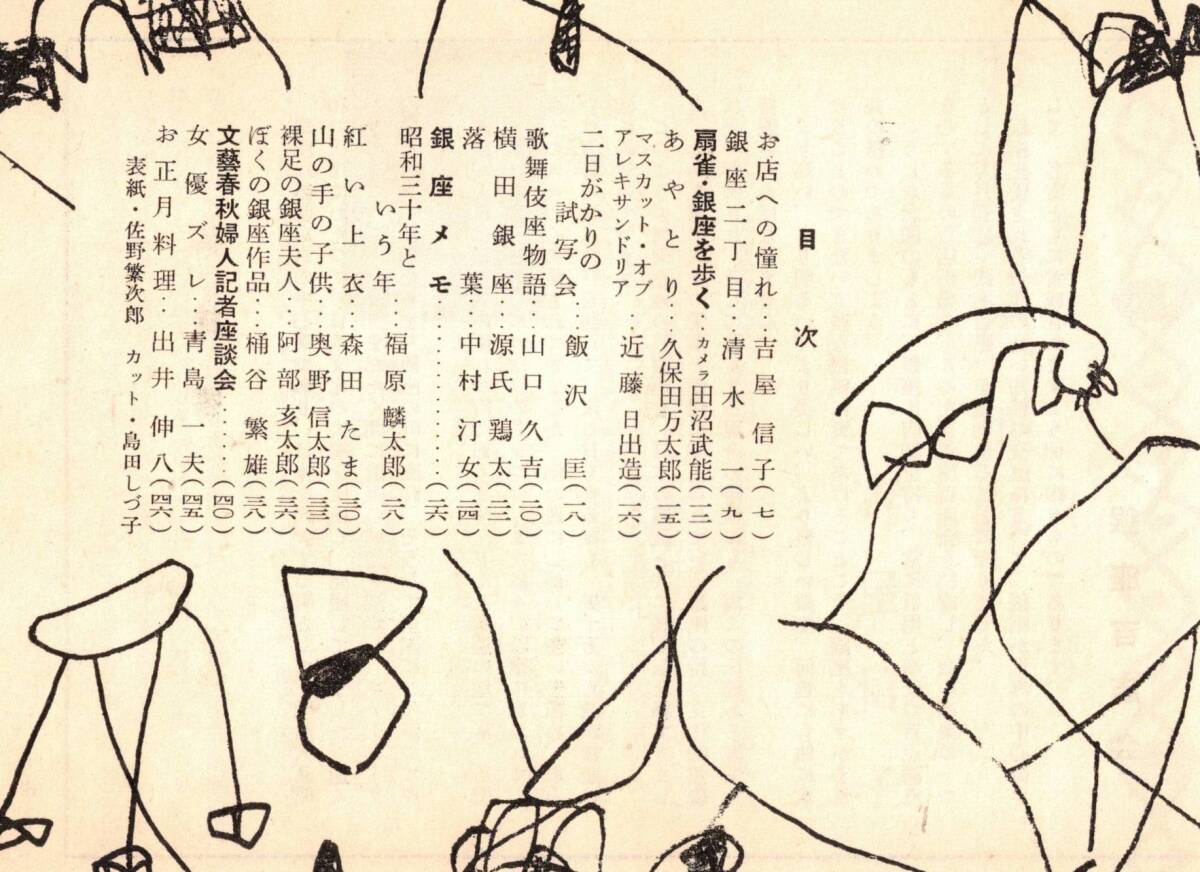 目次
お店への憧れ‥吉屋信子(七)
銀座二丁目‥清水一(九)
扇雀・銀座を歩く‥カメラ田沼武能(一二)
あやとり‥久保田万太郎(一五)
マスカット・オブ
アレキサンドリア‥近藤日出造(一六)
二日がかりの
試写会‥飯沢匡(一八)
歌舞伎座物語‥山口久吉(二〇)
横田銀座‥源氏鶏太(二二)
落葉‥中村汀女(二四)
銀座メモ‥‥‥‥‥‥(二六)
昭和三十年と
いう年‥福原麟太郎(二八)
紅い上衣‥森田たま(三〇)
山の手の子供‥奥野信太郎(三三)
裸足の銀座夫人‥阿部亥太郎(三六)
ぼくの銀座作品‥桶谷繁雄(三八)
文藝春秋婦人記者座談会‥‥‥(四〇)
女優ズレ‥青島一夫(四五)
お正月料理‥出井伸八(四六)
表紙・佐野繁次郎 カット・島田しづ子